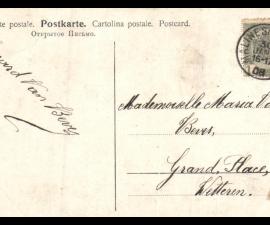 te postale. Postkarte. Cartolina postale. Postcard.
Открытое Письмо.
MALINES
16-1
08
Van Bever
Mademoiselle Maria Van
Bever,
Grand, Place,
Wetteren.